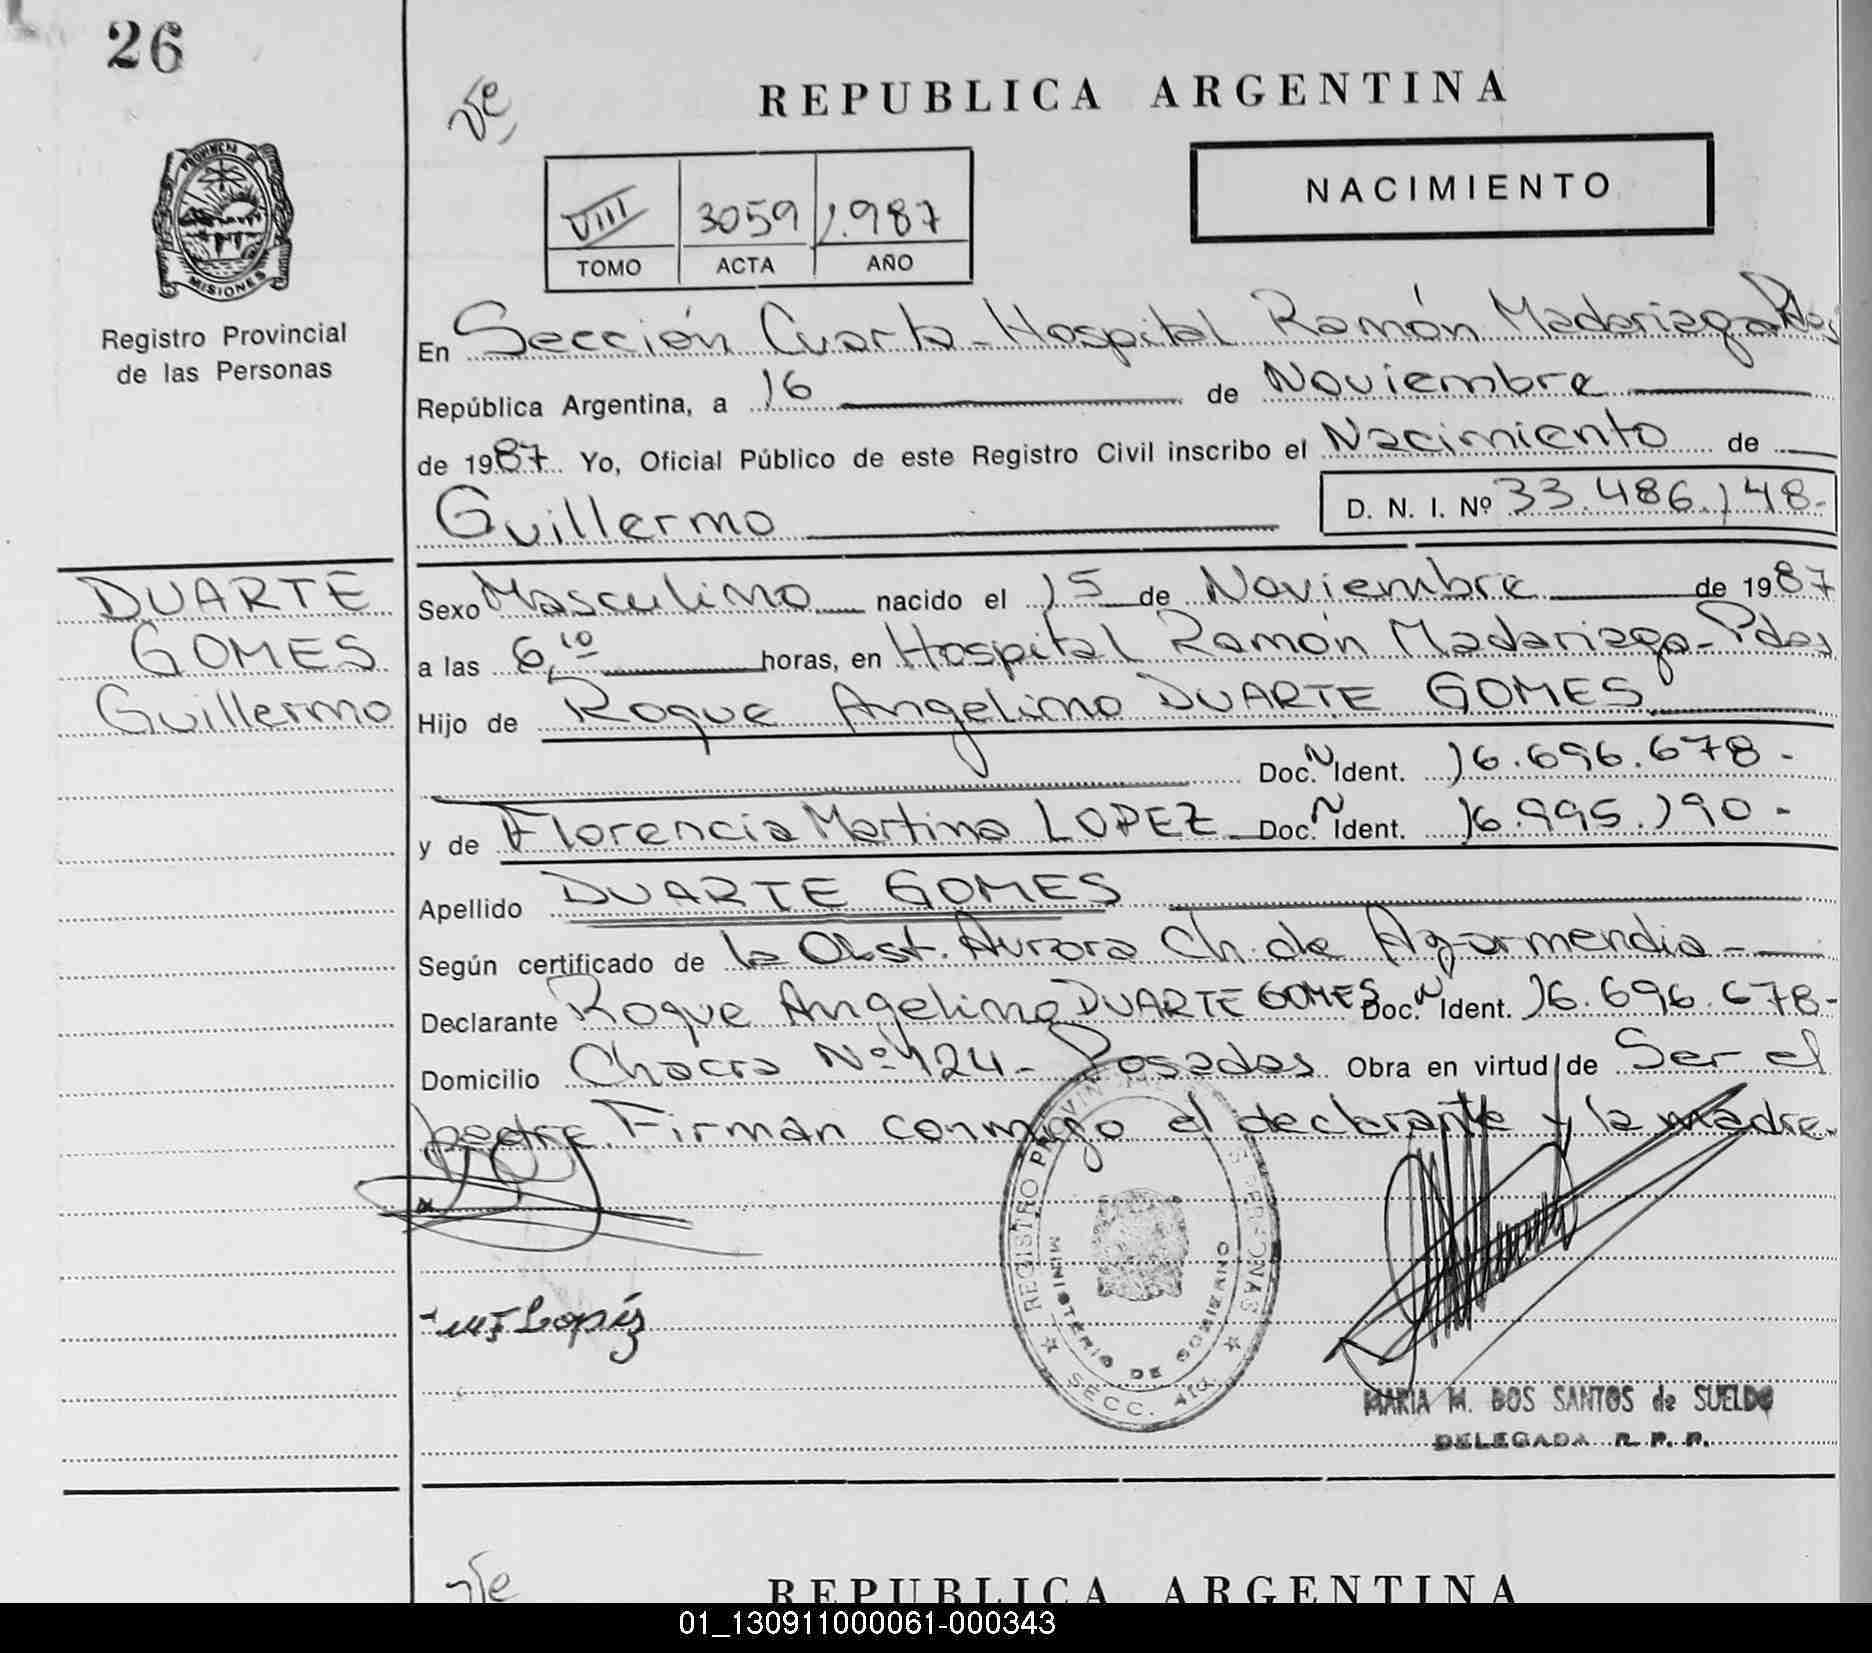 26
REPUBLICA ARGENTINA
PROVINCIA DE
MISIONES
Registro Provincial
de las Personas
VIII 3059 1.987
TOMO ACTA AÑO
NACIMIENTO
En Sección Cuarta - Hospital Ramón Madariaga Pdas
República Argentina, a 16 de Noviembre
de 1987 Yo, Oficial Público de este Registro Civil inscribo el Nacimiento de
Guillermo D. N. I. Nº 33.486.148-
DUARTE
GOMES
Guillermo
Sexo Masculino nacido el 15 de Noviembre de 1987
a las 6,10 horas, en Hospital Ramón Madariaga - Pdas
Hijo de Roque Angelino DUARTE GOMES
Doc. N Ident. 16.696.678-
y de Florencia Martina LOPEZ Doc. N Ident. 16.995.190-
Apellido DUARTE GOMES
Según certificado de la Obst. Aurora Ch. de Agarmendia -
Declarante Roque Angelino DUARTE GOMES Doc. N Ident. 16.696.678-
Domicilio Chacra Nº 124 - Posadas Obra en virtud de Ser el
padre. Firman conmigo el declarante y la madre.
REGISTRO PROVINCIAL DE LAS PERSONAS
MINISTERIO DE GOBIERNO
SECC. 4ta
MF Lopéz
MARIA M. DOS SANTOS de SUELDO
DELEGADA R. P. P.
REPUBLICA ARGENTINA
01_130911000061-000343